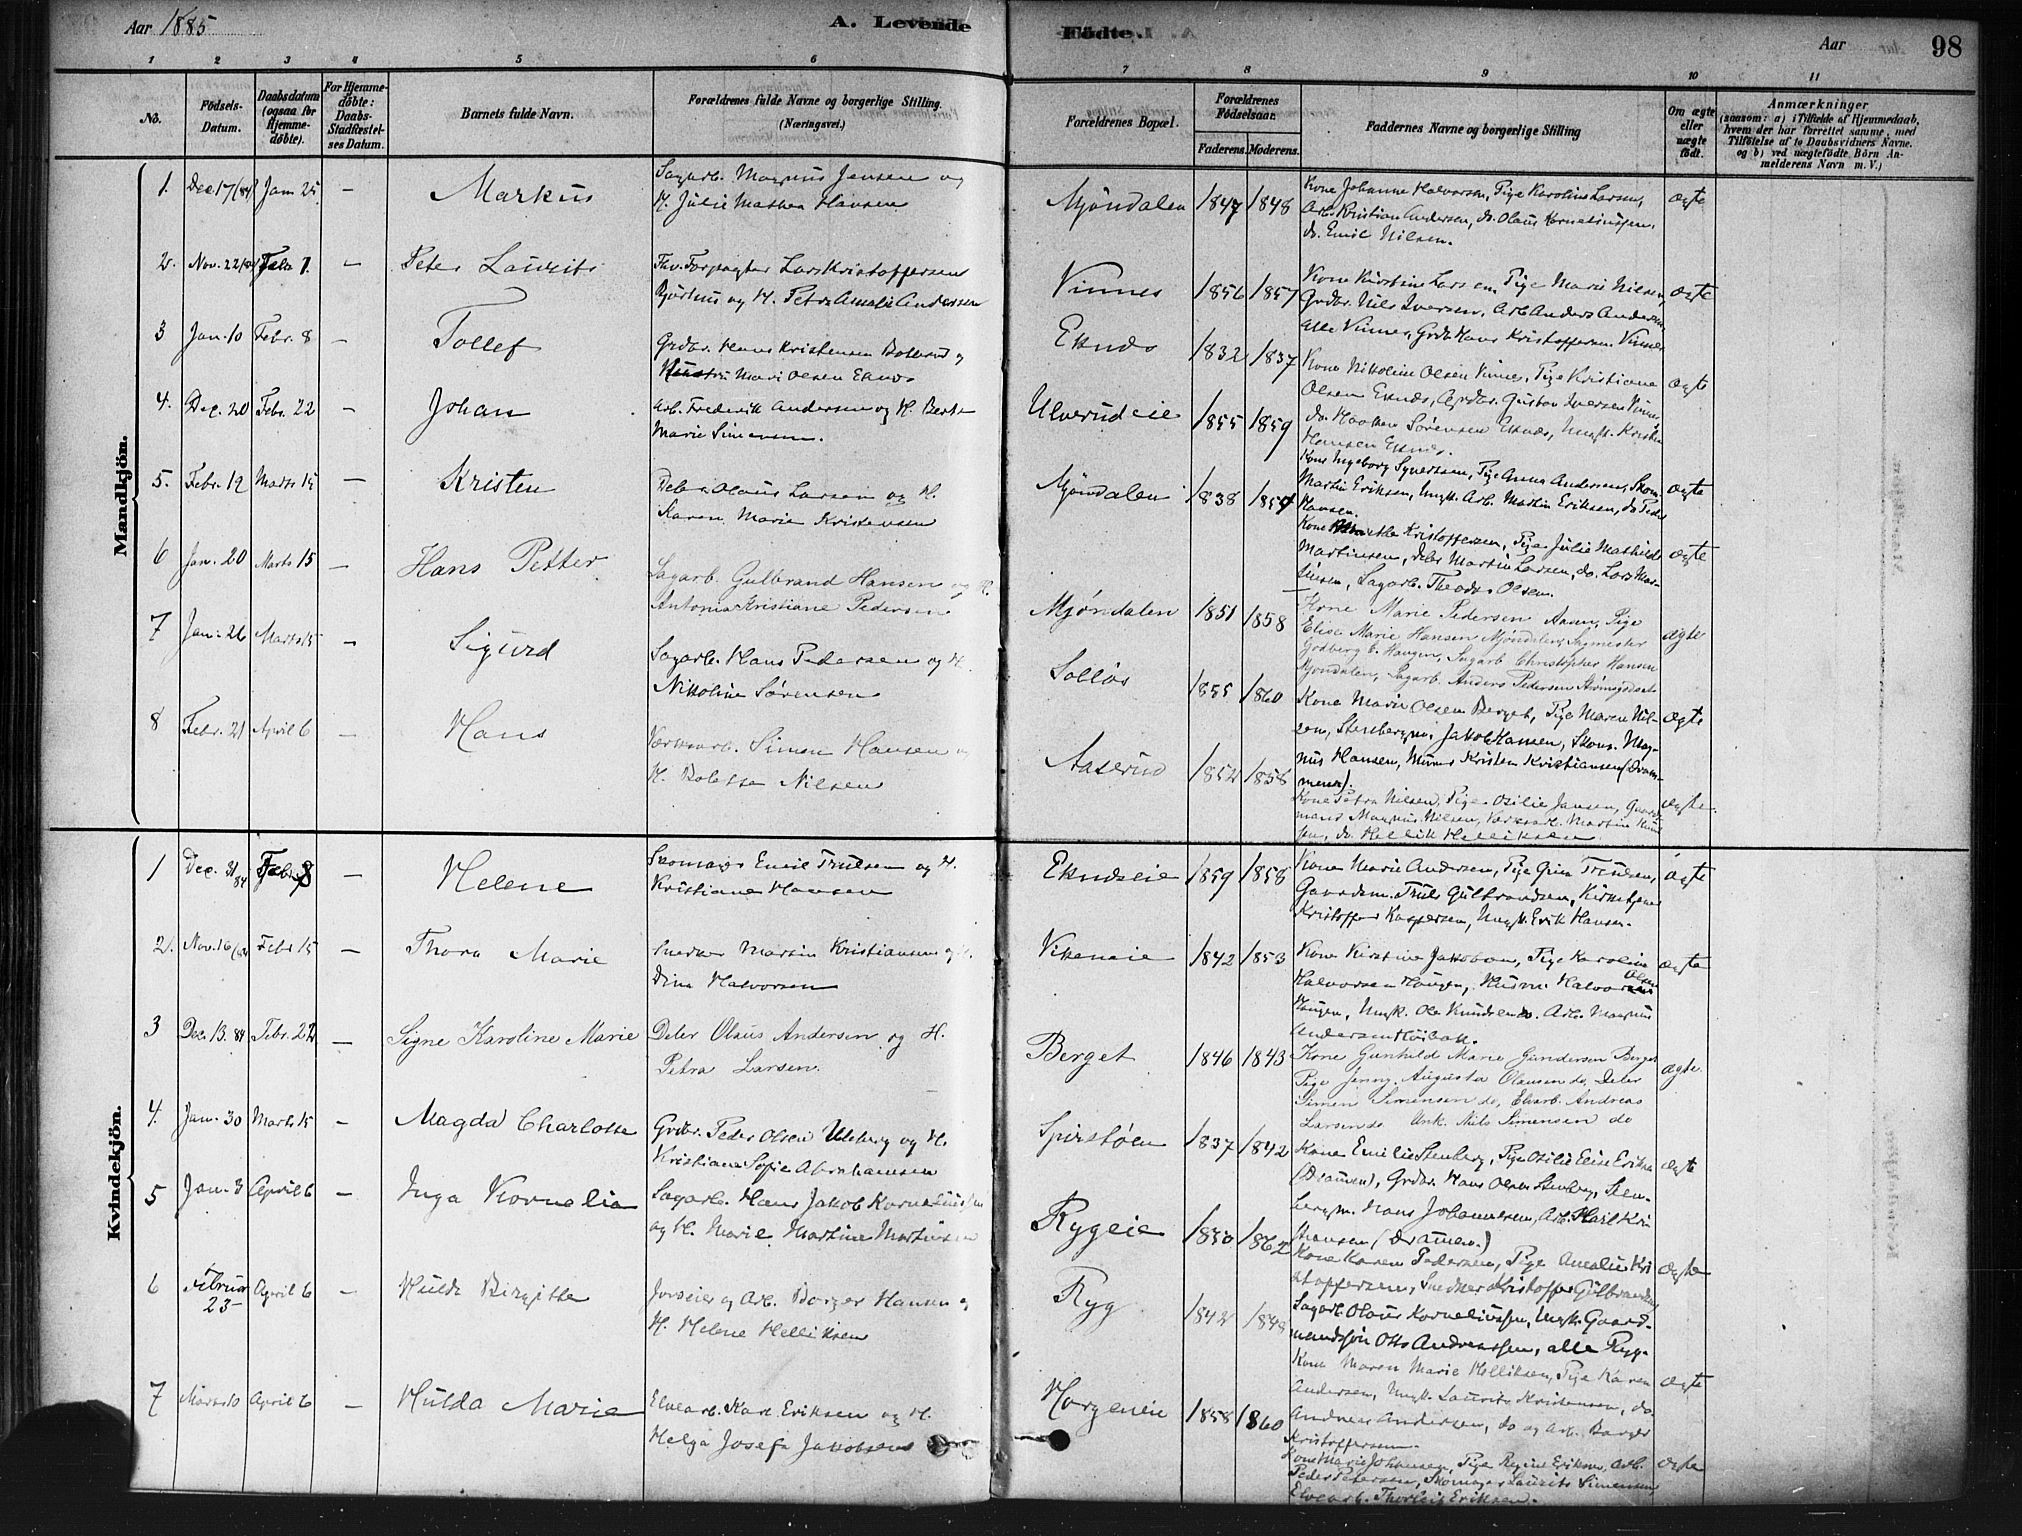 Aar 1885
A. Levende
Födte.
Aar
98
1 2 3 4 5 6 7 8 9 10 11
No.
Födsels-
Datum.
Daabsdatum
(ogsaa for
Hjemme-
döbte).
For Hjemme-
döbte:
Daabs-
Stadfæstel-
ses Datum.
Barnets fulde Navn.
Forældrenes fulde Navne og borgerlige Stilling.
(Næringsvei.)
Forældrenes Bopæl.
Forældrenes
Födselsaar.
Faderens. Moderens.
Faddernes Navne og borgerlige Stilling
Om ægte
eller
uægte
födt.
Anmærkninger
(saasom: a) i Tilfælde af Hjemmedaab,
hvem der har forrettet samme, med
Tilföielse af to Daabsvidners Navne.
og b) ved uægtefödte Börn An-
melderens Navn m. V.)
Mandkjön.
1. Dec. 17/(84) Jan 25 – Markus
Sagarb. Magnus Jensen og
H. Julie Mathea Hansen
Mjöndalen 1847 1848
Kone Johanne Halvorsen, Pige Karoline Larsen,
Arb. Kristian Andersen, do. Olaus Korneliussen,
do. Emil Nilsen.
ægte
2. Nov. 22/(84) Febr 1. – Peter Laurits
Fhv. Forpagter Lars Kristoffersen
og H. Petra Amalie Andersen
Vinnes 1856 1857
Kone Kirstine Larsen, Pige Marie Nilsen,
Grdbr. Nils Iversen, Arb. Anders Andersen,
alle Vinnes, Grdb. Hans Kristoffersen Vinnes
ægte
3 Jan. 10 Febr. 8 – Tollef
Grdbr. Hans Kristensen og
Mari Olsen Eknes
Eknes 1832 1837
Kone Nikoline Olsen Vinnes, Pige Kristiane
Olsen Eknes, Grdbr. Gustav Iversen Vinnes,
do. Haaken Sörensen Eknes, Ungk. Kristen
Hansen Eknes.
ægte
4. Dec. 20 Febr. 22 – Johan
Arb. Frederik Andersen og H. Berthe
Marie Simensen.
Ulverudeie 1855 1859
Kone Ingeborg Syvertsen, Pige Anna Andersen, Skom.
Martin Eriksen, Ungk. Arb. Martin Eriksen, do Peder
Hansen.
ægte
5. Febr. 12 Marts 15 – Kristen
Deler Olaus Larsen og H.
Karen Marie Kristensen
Mjöndalen 1838 1854
Kone Kristoffersen, Pige Julie Mathilde
Martinsen, Deler Martin Larsen, do. Lars Mar-
tinsen, Sagarb. Theodor Olsen.
ægte
6 Jan. 20 Marts 15 – Hans Petter
Sagarb. Gulbrand Hansen og H.
Antonia Kristiane Pedersen
Mjöndalen 1851 1858
Kone Marie Pedersen Aasen, Pige
Elise Marie Hansen Mjöndalen, Sagmester
Godberg C. Haugen, Sagarb Christopher Hansen
Mjöndalen, Sagarb. Anders Pedersen Strömsgodset
ægte
7 Jan. 26 Marts 15 – Sigurd
Sagarb. Hans Pedersen og H.
Nikoline Sörensen
Solløs 1855 1860
Kone Marie Olsen Berget, Pige Maren Nil-
sen, Stenbergmi Jakob Hansen, Skom. Mag-
nus Hansen, Murer Kristen Kristiansen (Dram-
mener).
ægte
8 Febr. 21 April 6 – Hans
Værksarb. Simen Hansen og
H. Bolette Nilsen
Aaserud 1852 1858
Kone Petra Nilsen, Pige Osilie Jansen, Gaard-
mand Magnus Nilsen, Værksarb. Martin Knud-
sen, do. Hellik Helliksen
ægte
Kvindekjön.
1 Dec. 31 84 Febr 8 – Helene
Skomager Emil Trulsen og H.
Kristiane Hansen
Ekneseie 1859 1858
Kone Marie Andersen, Pige Trulsen,
Gaardm. Truls Gulbrandsen, Kirketjener
Kristoffer Kaspersen, Ungk. Erik Hansen.
ægte
2. Nov. 16/(84) Febr 15 – Thora Marie
Snedker Martin Kristiansen og H.
Dina Halvorsen
Vikeneie 1842 1853
Kone Kirstine Jakobsen, Pige Karoline
Halvorsen Haugen, Husm. Halvor Olsen
Haugen, Ungk. Ole Knudsen do. Arb. Magnus
Andersen
ægte
3 Dec. 13. 84 Febr. 22 – Signe Karoline Marie
Deler Olaus Andersen og H.
Petra Larsen.
Berget 1846 1843
Kone Gunhild Marie Gundersen Berget
Pige Jenny Augusta Olausen do, Deler
Simen Simensen do, Elvarb. Andreas
Larsen do Unk. Nils Simensen do
ægte
4. Jan. 30 Marts 15 – Magda Charlotte
Grdbr. Peder Olsen og H.
Kristiane Sofie Abrahamsen
Spirstöen 1837 1842
Kone Emilie Stenberg, Pige Osilie Elise Eriksen
(Dramen), Grdbr. Hans Olsen Stenberg, Sten-
bergm. Hans Johannesen, Arb. Karl Kri-
stiansen (Dramen.)
ægte
5 Jan. 3 April 6 – Inga Kornelia
Sagarb. Hans Jakob Korneliussen
og H. Marie Martine Martinsen
Rygeie 1850 1862
Kone Karen Pedersen, Pige Amalie Kri-
stoffersen, Snedker Kristoffer Gulbrandsen,
Sagarb Olaus Korneliussen, Ungk. Gaard-
mandssön Otto Andreassen, alle Ryg.
ægte
6 Februar 23 – April 6 – Hulda Birgitte
Jordeier og Arb. Borger Hansen og
H. Helene Helliksen
Ryg 1842 1848
Kone Maren Marie Helliksen, Pige Karen
Andersen, Ungk. Laurits Kristensen, do.
Andreas Andersen, do og Arb. Borger
Kristoffersen.
ægte
7 Marts 10 April 6 – Hulda Marie
Elvearb. Karl Eriksen og H.
Helga Josefa Jakobsen
Horgeneie 1858 1860
Kone Marie Johansen, Pige Regine Eriksen, Arb.
Peder Petersen, Skomager Laurits Simensen,
Elvearb. Thorleif Eriksen.
ægte